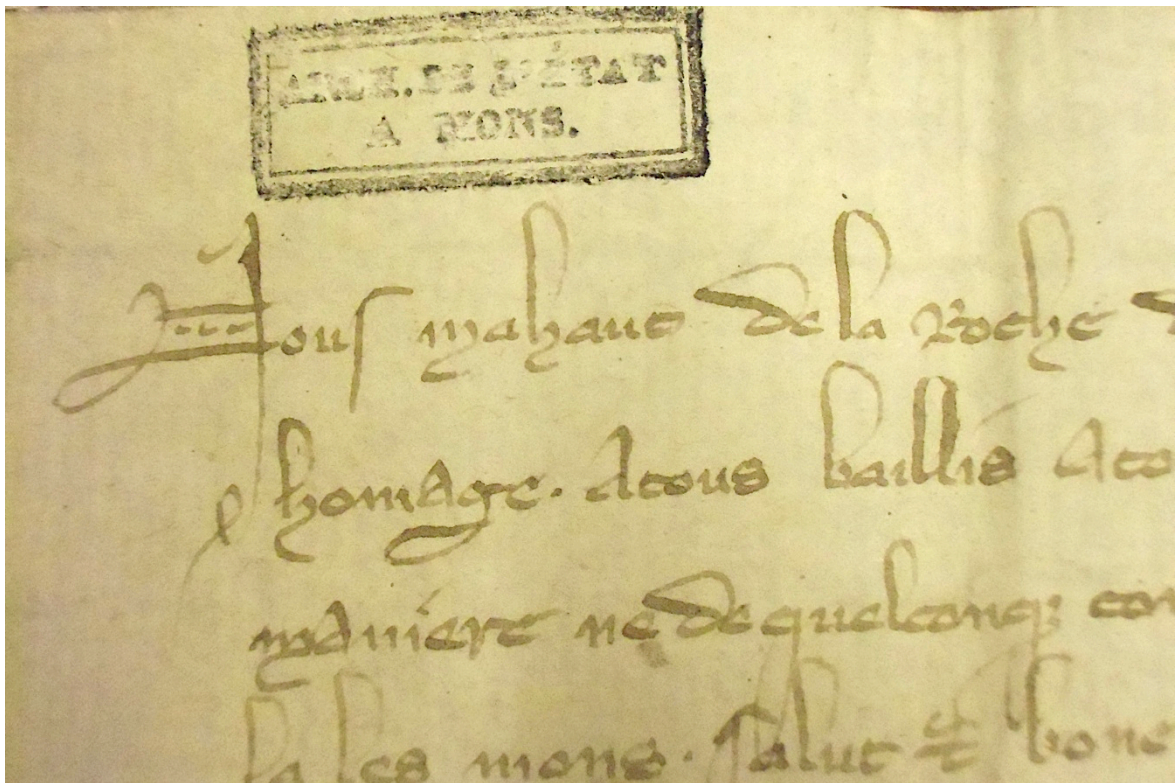 ARCH. DE L'ÉTAT
A MONS.
Nous mahaut de la Roche
homage. Atous baillis Ato
maniere ne de quelconq; con
la les mons. Salut & bone